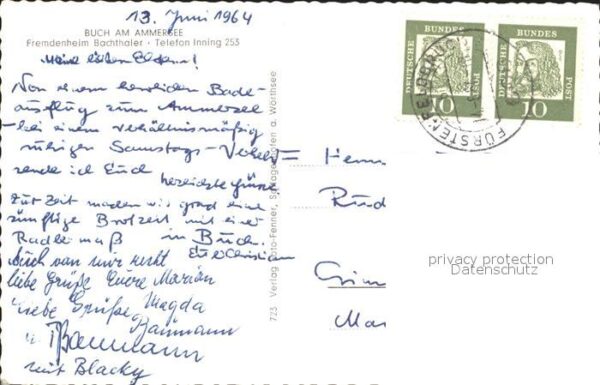 13. Juni 1964
BUCH AM AMMERSEE
Fremdenheim Bachthaler • Telefon Inning 253
Meine lieben Eltern!
Von einem herrlichen Bade-
ausflug zum Ammersee
– bei einem verhältnismäßig
ruhigen Samstags-Verkehr –
sende ich Euch
herzlichste Grüße
Zur Zeit machen wir grad eine
zünftige Brotzeit mit einer
Radlermaß in Buch.
Euer Christian
Auch von mir recht
liebe Grüße Euere Marion
Liebe Grüße Magda
Baumann
Baumann
mit Blacky
723 Verlag Foto-Fenner, a. Wörthsee
DEUTSCHE BUNDESPOST
10
DEUTSCHE BUNDESPOST
10
FÜRSTENFELDBRUCK
Herrn
Rud
Mar
privacy protection
Datenschutz